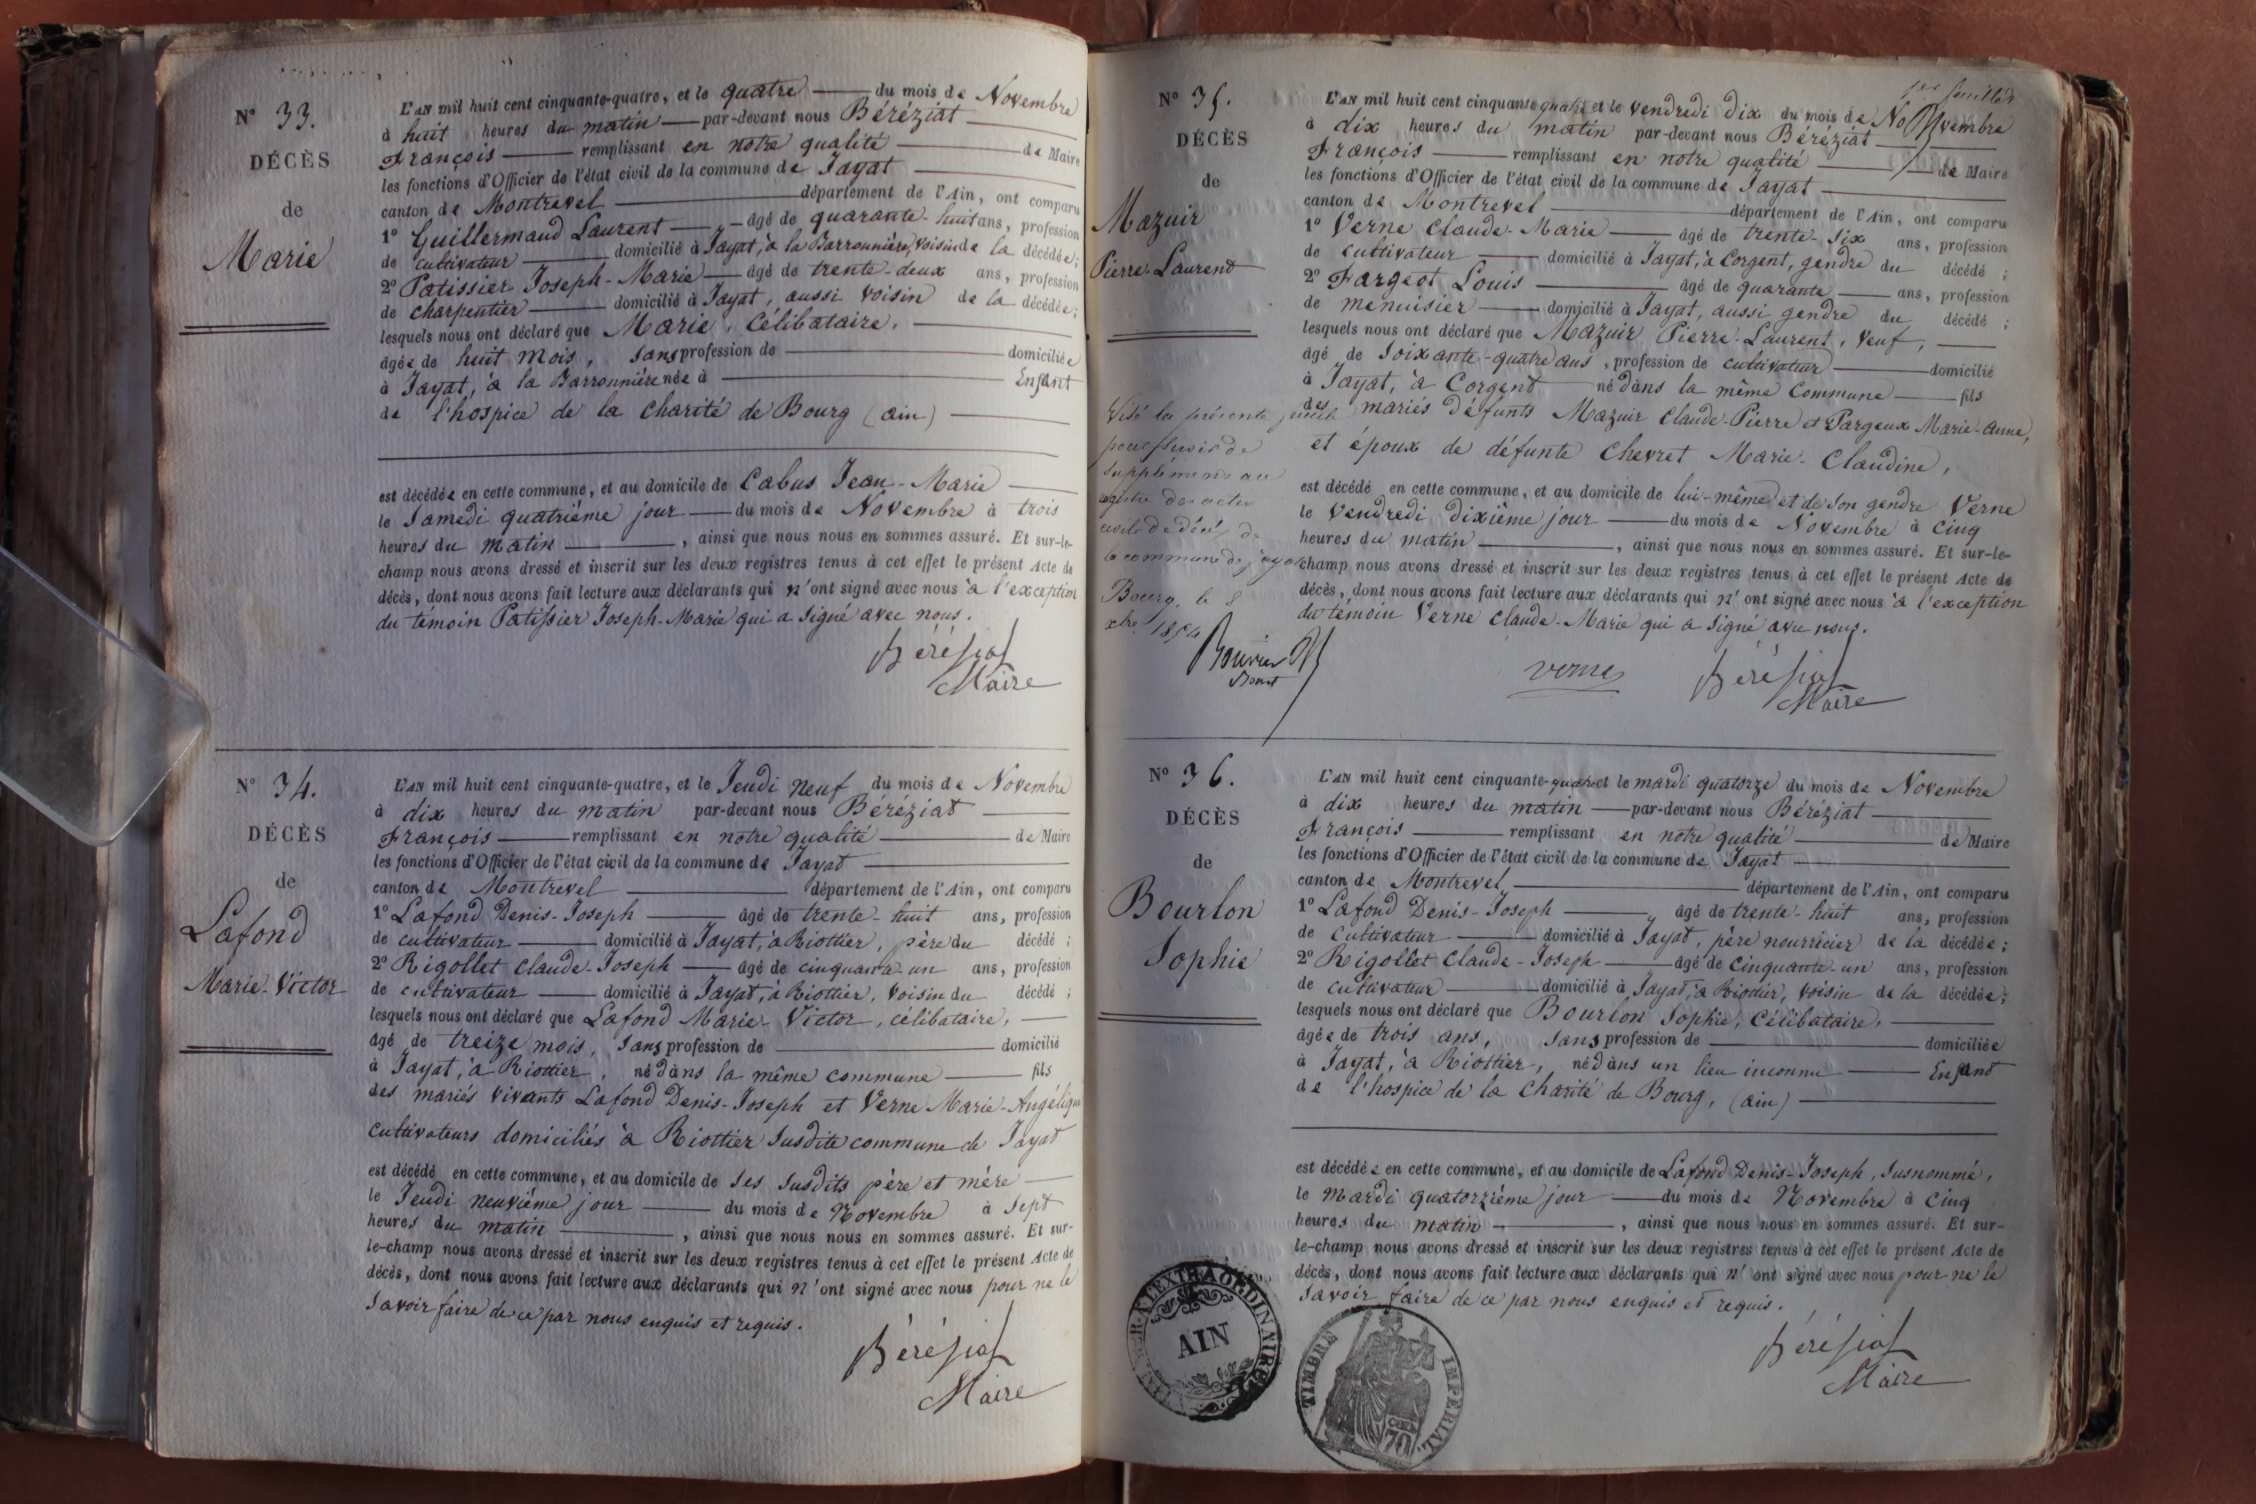 N° 33.
DÉCÈS
de
Marie
L'AN mil huit cent cinquante-quatre, et le quatre du mois de Novembre
à huit heures du matin par-devant nous Béréziat
François remplissant en notre qualité de Maire
les fonctions d'Officier de l'état civil de la commune de Jayat
canton de Montrevel département de l'Ain, ont comparu
1° Guillermaud Laurent âgé de quarante-huit ans, profession
de cultivateur domicilié à Jayat, à la Barronnière, voisin de la décédée;
2° Patissier Joseph-Marie âgé de trente-deux ans, profession
de charpentier domicilié à Jayat, aussi voisin de la décédée;
lesquels nous ont déclaré que Marie, célibataire,
âgée de huit mois, sans profession de domiciliée
à Jayat, à la Barronnière née à Enfant
de l'hospice de la charité de Bourg (ain)
est décédée en cette commune, et au domicile de Cabus Jean-Marie
le Samedi quatrième jour du mois de Novembre à trois
heures du matin, ainsi que nous nous en sommes assuré. Et sur-le-
champ nous avons dressé et inscrit sur les deux registres tenus à cet effet le présent Acte de
décès, dont nous avons fait lecture aux déclarants qui n'ont signé avec nous à l'exception
du témoin Patissier Joseph-Marie qui a signé avec nous.
Béréziat
Maire
N° 34.
DÉCÈS
de
Lafond
Marie-Victor
L'AN mil huit cent cinquante-quatre, et le Jeudi neuf du mois de Novembre
à dix heures du matin par-devant nous Béréziat
François remplissant en notre qualité de Maire
les fonctions d'Officier de l'état civil de la commune de Jayat
canton de Montrevel département de l'Ain, ont comparu
1° Lafond Denis-Joseph âgé de trente-huit ans, profession
de cultivateur domicilié à Jayat, à Riottier, père du décédé;
2° Rigollet Claude-Joseph âgé de cinquante-un ans, profession
de cultivateur domicilié à Jayat, à Riottier, voisin du décédé;
lesquels nous ont déclaré que Lafond Marie-Victor, célibataire,
âgé de treize mois, sans profession de domicilié
à Jayat, à Riottier, né dans la même commune fils
des mariés vivants Lafond Denis-Joseph et Verne Marie-Angélique
cultivateurs domiciliés à Riottier susdite commune de Jayat
est décédé en cette commune, et au domicile de ses susdits père et mère
le Jeudi neuvième jour du mois de Novembre à sept
heures du matin, ainsi que nous nous en sommes assuré. Et sur-
le-champ nous avons dressé et inscrit sur les deux registres tenus à cet effet le présent Acte de
décès, dont nous avons fait lecture aux déclarants qui n'ont signé avec nous pour ne le
savoir faire de ce par nous enquis et requis.
Béréziat
Maire
N° 35.
DÉCÈS
de
Mazuir
Pierre-Laurent
Visé la présente feuille
pour servir de
supplément au
registre des actes
civils de décès de
la commune de jayat
Bourg, le 8
xbre 1854
Bouvier
L'AN mil huit cent cinquante quatre et le vendredi dix du mois de Novembre
à dix heures du matin par-devant nous Béréziat
François remplissant en notre qualité de Maire
les fonctions d'Officier de l'état civil de la commune de Jayat
canton de Montrevel département de l'Ain, ont comparu
1° Verne Claude-Marie âgé de trente-six ans, profession
de cultivateur domicilié à Jayat, à Corgent, gendre du décédé;
2° Fargeot Louis âgé de quarante ans, profession
de menuisier domicilié à Jayat, aussi gendre du décédé;
lesquels nous ont déclaré que Mazuir Pierre-Laurent, veuf,
âgé de soixante-quatre ans, profession de cultivateur domicilié
à Jayat, à Corgent né dans la même Commune fils
des mariés défunts Mazuir Claude-Pierre et Pargeux Marie-Anne,
et époux de défunte Chevret Marie-Claudine,
est décédé en cette commune, et au domicile de lui-même et de son gendre Verne
le Vendredi dixième jour du mois de Novembre à cinq
heures du matin, ainsi que nous nous en sommes assuré. Et sur-le-
champ nous avons dressé et inscrit sur les deux registres tenus à cet effet le présent Acte de
décès, dont nous avons fait lecture aux déclarants qui n'ont signé avec nous à l'exception
du témoin Verne Claude-Marie qui a signé avec nous.
verne Béréziat
Maire
N° 36.
DÉCÈS
de
Bourlon
Sophie
L'AN mil huit cent cinquante-quatre et le mardi quatorze du mois de Novembre
à dix heures du matin par-devant nous Béréziat
François remplissant en notre qualité de Maire
les fonctions d'Officier de l'état civil de la commune de Jayat
canton de Montrevel département de l'Ain, ont comparu
1° Lafond Denis-Joseph âgé de trente-huit ans, profession
de cultivateur domicilié à Jayat, père nourricier de la décédée;
2° Rigollet Claude-Joseph âgé de cinquante-un ans, profession
de cultivateur domicilié à Jayat, à Riottier, voisin de la décédée;
lesquels nous ont déclaré que Bourlon Sophie, célibataire,
âgée de trois ans, sans profession de domiciliée
à Jayat, à Riottier, né dans un lieu inconnu Enfant
de l'hospice de la Charité de Bourg, (ain)
est décédée en cette commune, et au domicile de Lafond Denis-Joseph, susnommé,
le Mardi quatorzième jour du mois de Novembre à cinq
heures du matin, ainsi que nous nous en sommes assuré. Et sur-
le-champ nous avons dressé et inscrit sur les deux registres tenus à cet effet le présent Acte de
décès, dont nous avons fait lecture aux déclarants qui n'ont signé avec nous pour ne le
savoir faire de ce par nous enquis et requis.
Béréziat
Maire
A L'EXTRAORDINAIRE
AIN
TIMBRE IMPÉRIAL
CEN
70